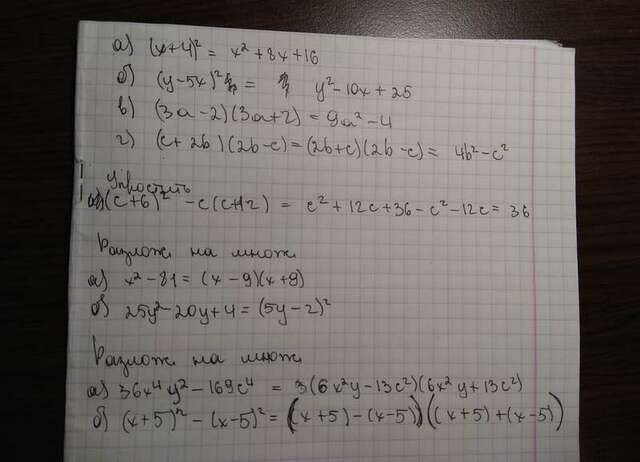 а) (x+4)² = x² + 8x + 16
б) (y-5x)² = y² - 10x + 25
в) (3a-2)(3a+2) = 9a² - 4
г) (c+2b)(2b-c) = (2b+c)(2b-c) = 4b² - c²
Упростить
(c+6)² - c(c+12) = c² + 12c + 36 - c² - 12c = 36
Разлож на множ
а) x² - 81 = (x-9)(x+9)
б) 25y² - 20y + 4 = (5y-2)²
Разлож на множ
а) 36x⁴y² - 169c⁴ = 3(6x²y - 13c²)(6x²y + 13c²)
б) (x+5)² - (x-5)² = ((x+5) - (x-5))((x+5) + (x-5))